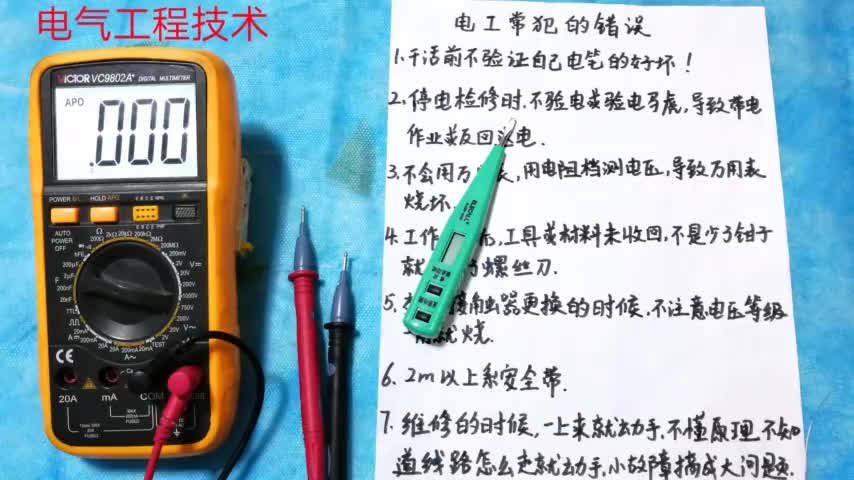 电气工程技术
VICTOR VC9802A+ DIGITAL MULTIMETER
APO
.000
POWER B/L HOLD APO
AUTO POWER OFF
20A mA COM
电工常犯的错误
1.干活前不验证自己电笔的好坏！
2.停电检修时.不验电或验电马虎,导致带电
作业或反回送电.
3.不会用万表,用电阻档测电压,导致万用表
烧坏.
4.工作,工具或材料未收回,不是少了钳子
就螺丝刀.
5.触器更换的时候,不注意电压等级
就烧.
6.2m以上系安全带.
7.维修的时候,一上来就动手,不懂原理,不知
道线路怎么走就动手,小故障搞成大问题.